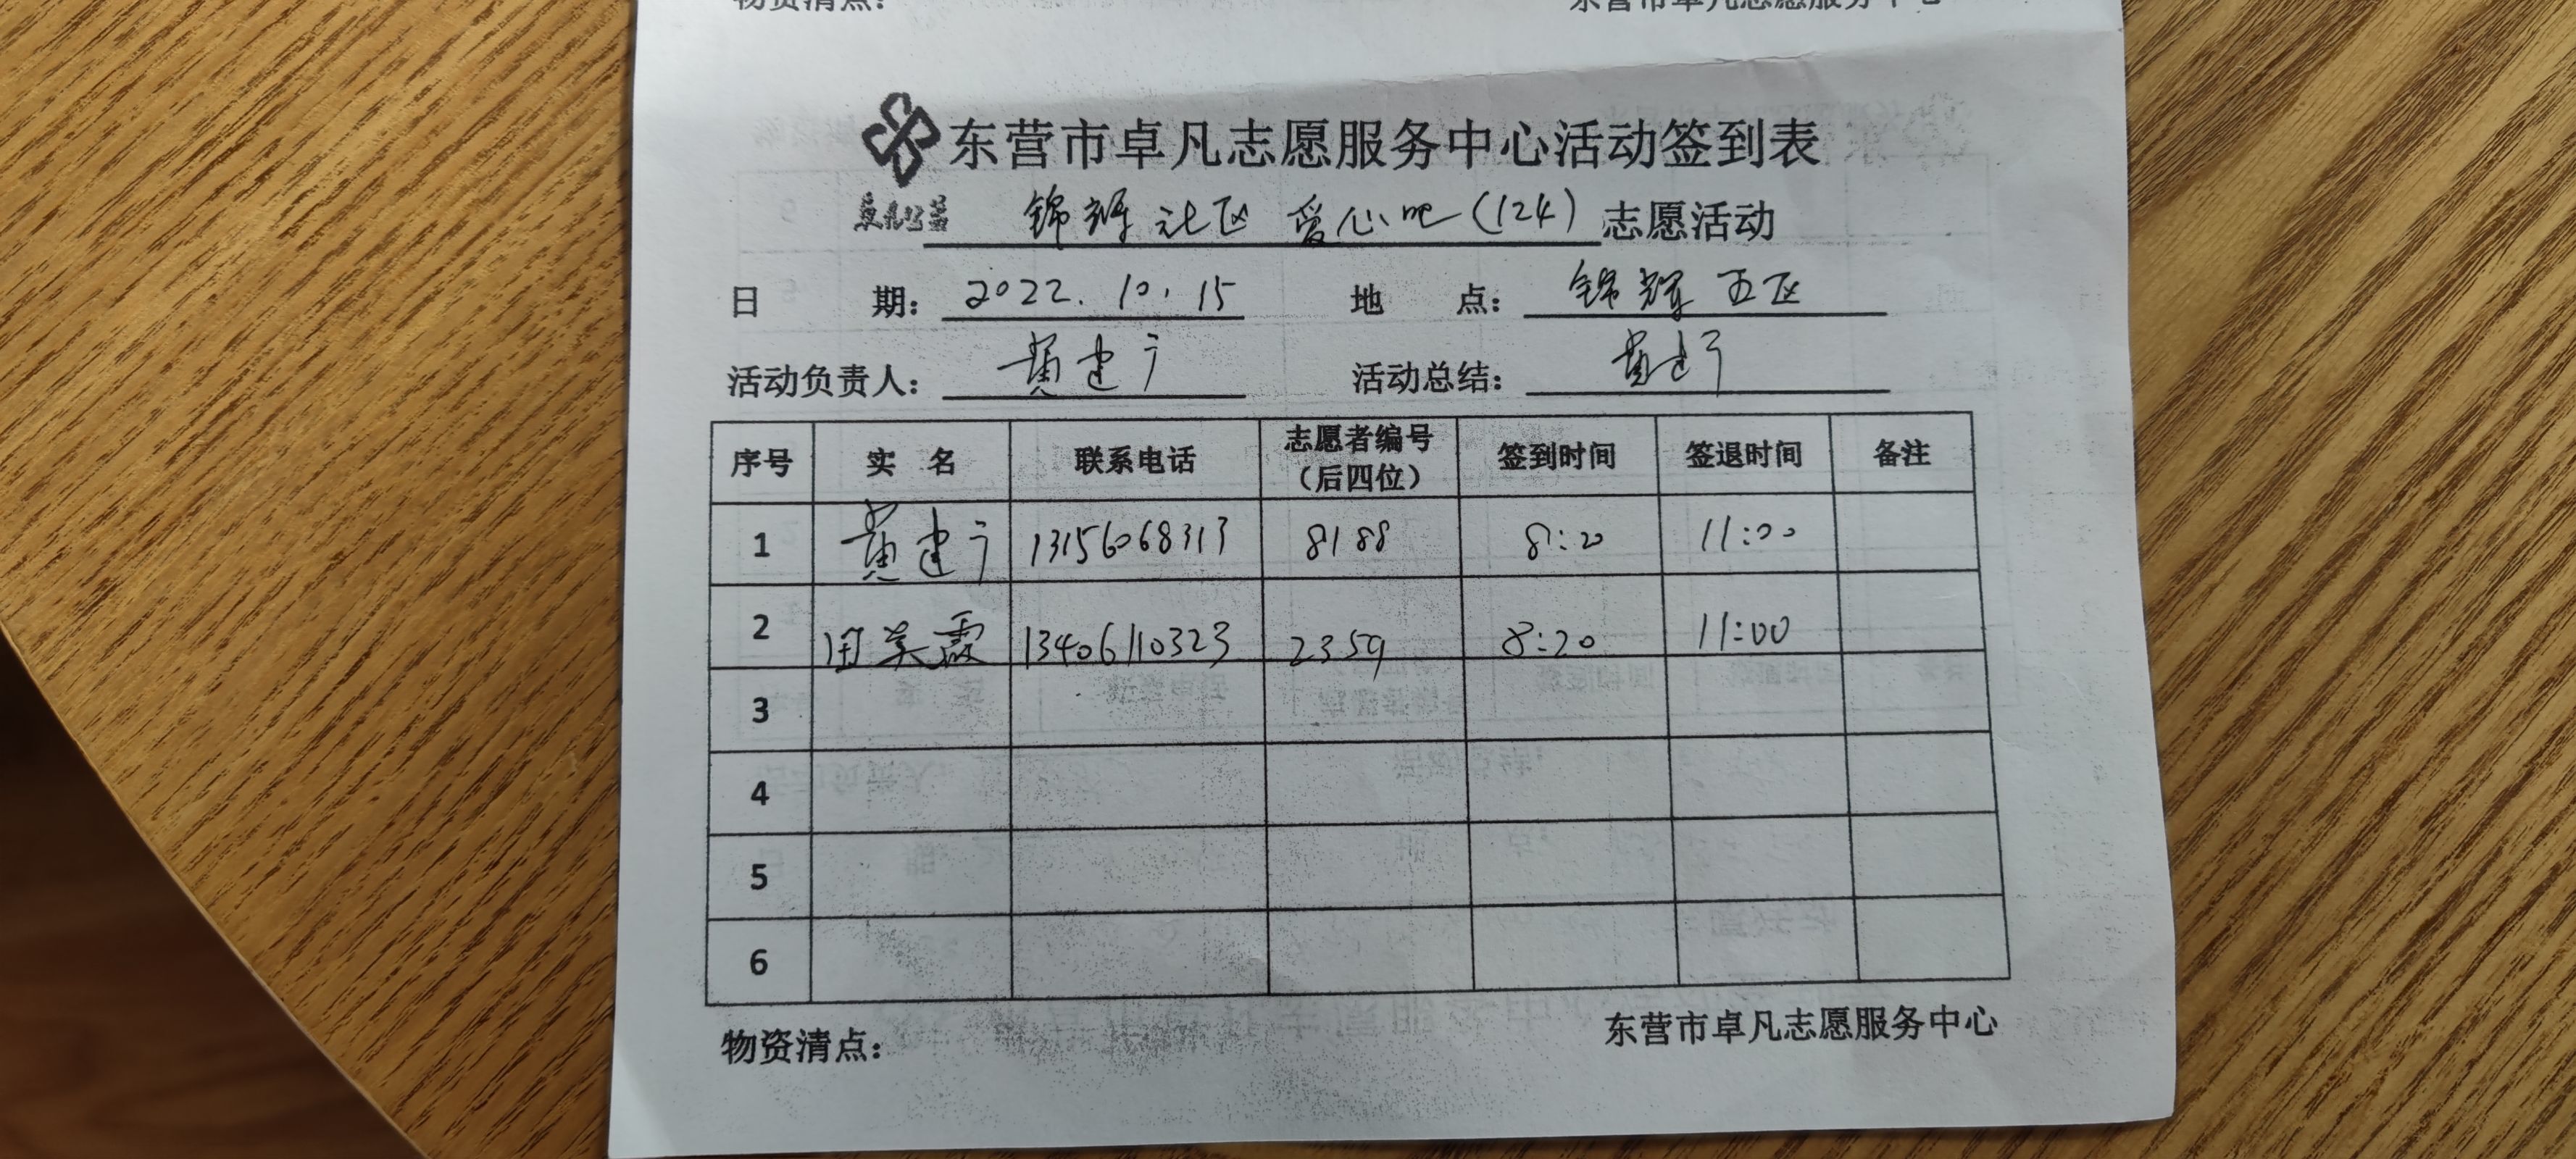 物资清点：
东营市卓凡志愿服务中心
东营市卓凡志愿服务中心活动签到表
卓凡公益
锦辉社区 爱心吧(124) 志愿活动
日 期： 2022.10.15 地 点： 锦辉五区
活动负责人： 黄建广 活动总结： 黄建广
序号 实 名 联系电话 志愿者编号（后四位） 签到时间 签退时间 备注
1 黄建广 13156068313 8188 8:20 11:00
2 田英霞 13406110323 2359 8:20 11:00
3
4
5
6
物资清点：
东营市卓凡志愿服务中心